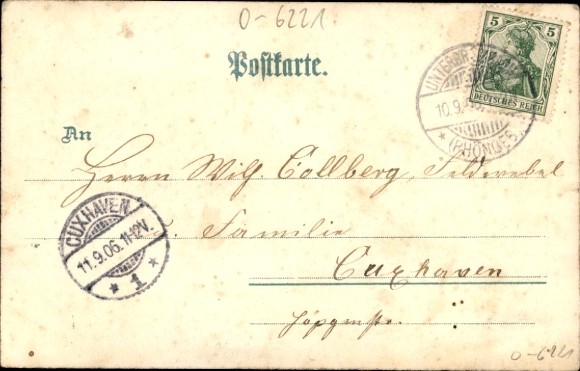 0-6221.
Postkarte.
5 5
DEUTSCHES REICH
10.9.
* (RHÖN)
An
Herrn Wilh. Collberg, Feldwebel
CUXHAVEN
11.9.06. 11-12V.
* 1 *
u. Familie
Cuxhaven
0-6221